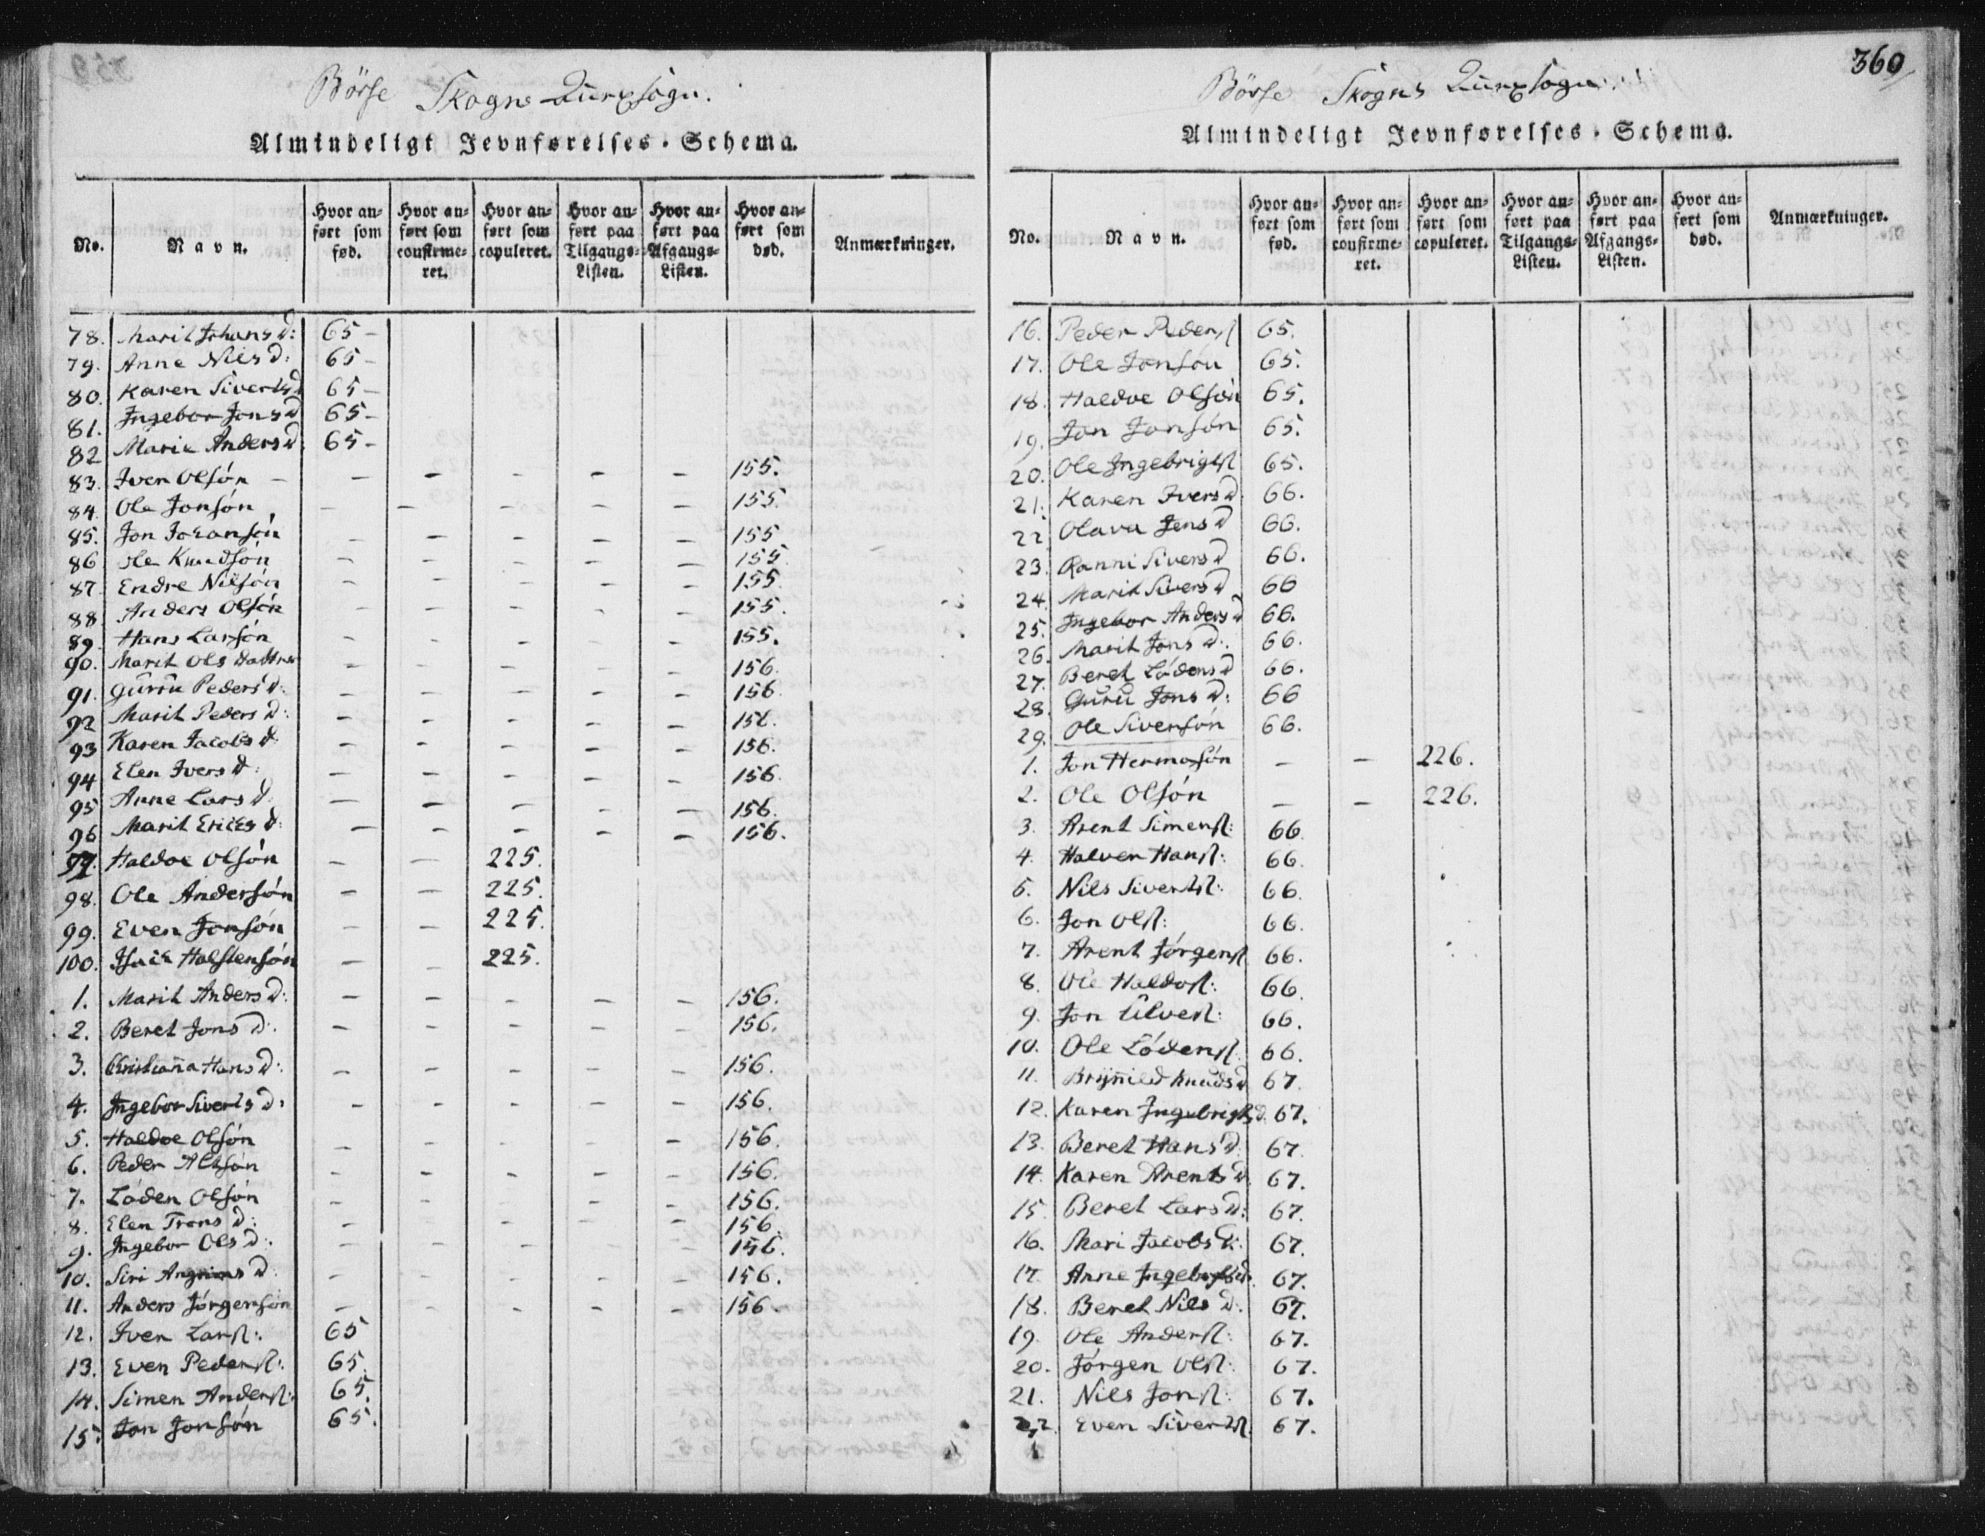 360
Börse Skogns
Almindeligt Jevnførelses-Schema.
No. Navn. Hvor anført som fød. Hvor anført som confirmeret. Hvor anført som copuleret. Hvor anført paa Tilgangs-Listen. Hvor anført paa Afgangs-Listen. Hvor anført som død. Anmærkninger.
78. Marit Johans d: 65 -
79. Anne Nils d: 65 -
80. Karen Siverts d 65 -
81. Ingebor Jons d 65 -
82 Marie Anders d: 65 -
83. Iver Olsön - - - - - 155.
84. Ole Jonsön - - - - - 155.
85. Jon Johansön - - - - - 155
86 Ole Knudsön - - - - - 155.
87. Endre Nilsön - - - - - 155.
88. Anders Olsön - - - - - 155.
89. Hans Larsön - - - - - 155.
90. Marit Ols datter - - - - - 156.
91. Gurru Peders d: - - - - - 156
92 Marit Peders d: - - - - - 156.
93 Karen Jacobs d. - - - - - 156.
94 Elen Ivers d: - - - - - 156.
95 Anne Lars d. - - - - - 156.
96 Marit Erichs d: - - - - - 156.
97. Haldoe Olsön - - 225.
98. Ole Andersön - - 225.
99. Even Jonsön - - 225.
100. Isack Halstensön - - 225.
1. Marit Anders d: - - - - - 156.
2. Beret Jons d: - - - - - 156.
3. Christiana Hans d: - - - - - 156.
4. Ingebor Siverts d: - - - - - 156.
5. Haldoe Olsön - - - - - 156.
6. Peder - - - - - 156.
7. Löden Olsön - - - - - 156.
8. Elen Trons d: - - - - - 156.
9. Ingebor Ols d: - - - - - 156.
10. Siri d: - - - - - 156.
11. Anders Jörgensön - - - - - 156.
12. Iver Lars: 65
13. Even Peders: 65.
14. Simen Anders: 65.
15. Jon Jonsön 65.
Börse Skogns
Almindeligt Jevnførelses-Schema.
No. Navn. Hvor anført som fød. Hvor anført som confirmeret. Hvor anført som copuleret. Hvor anført paa Tilgangs-Listen. Hvor anført paa Afgangs-Listen. Hvor anført som død. Anmærkninger.
16. Peder Peders 65.
17. Ole Jonsön 65.
18. Haldoe Olsön 65.
19. Jon Jonsön 65.
20. Ole Ingebrigts 65.
21. Karen Ivers d. 66.
22 Olava Jens d 66.
23. Ranni Sivers d 66.
24. Marit Sivers d 66
25. Ingebor Anders d 66.
26. Marit Jons d: 66.
27. Beret Lödens d 66.
28. Guru Jons d: 66
29. Ole Siversön 66.
1. Jon Hermosön - - 226.
2. Ole Olsön - - 226.
3. Arent Simens: 66
4. Halver Hans: 66.
5. Nils Siverts: 66.
6. Jon Ols: 66.
7. Arent Jörgens 66.
8. Ole Haldos: 66.
9. Jon Ulves: 66.
10. Ole Lödens: 66.
11. Brynild Knuds d 67.
12. Karen Ingebrigts d. 67.
13. Beret Hans d: 67.
14. Karen Arents d. 67.
15. Beret Lars d: 67.
16. Mari Jacobs d: 67.
17. Anne 67.
18. Beret Nils d: 67.
19. Ole Anders: 67.
20. Jörgen Ols: 67.
21. Nils Jons: 67.
22. Even Siverts: 67.